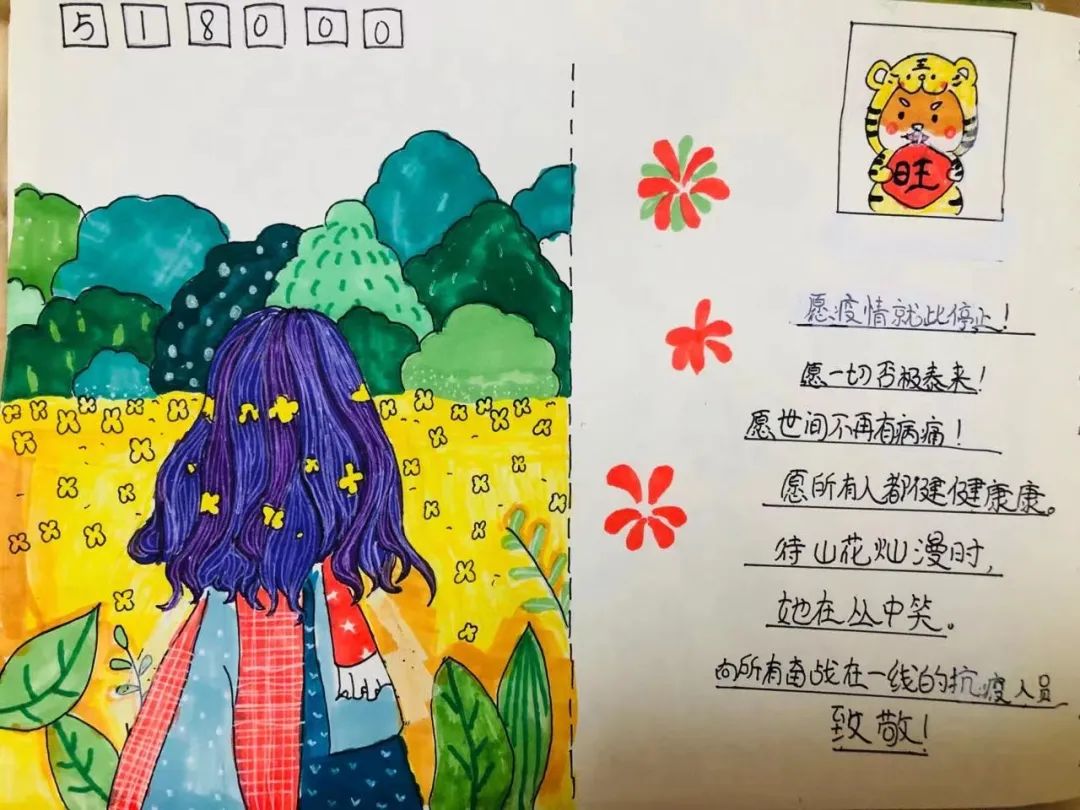 518000
王
旺
愿疫情就此停止！
愿一切否极泰来！
愿世间不再有病痛！
愿所有人都健健康康。
待山花灿漫时，
她在丛中笑。
向所有奋战在一线的抗疫人员
致敬！